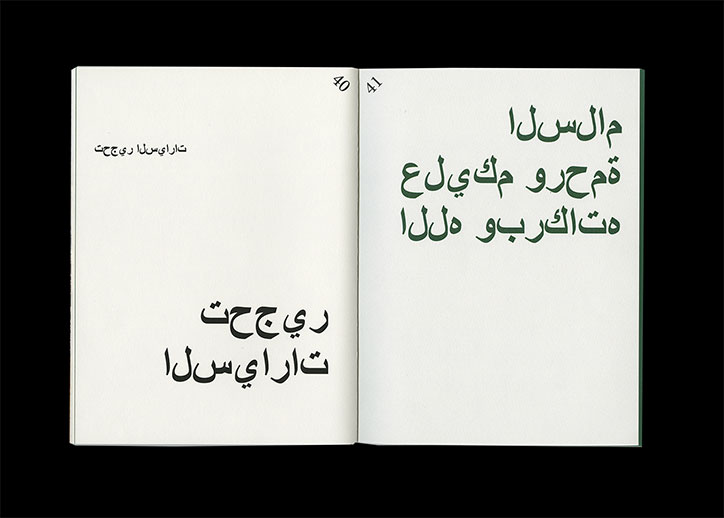 40
تحجير السيارات
تحجير
السيارات
41
السلام
عليكم ورحمة
الله وبركاته